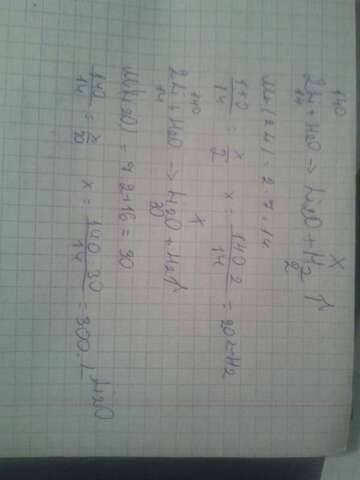 140 x
2Li + H2O → Li2O + H2 ↑
14 2
M(2Li) = 2 · 7 = 14
140/14 = x/2 x = 140·2/14 = 20 г H2
140 x
2Li + H2O → Li2O + H2 ↑
14 30
M(Li2O) = 7·2+16 = 30
140/14 = x/30 x = 140·30/14 = 300 г Li2O